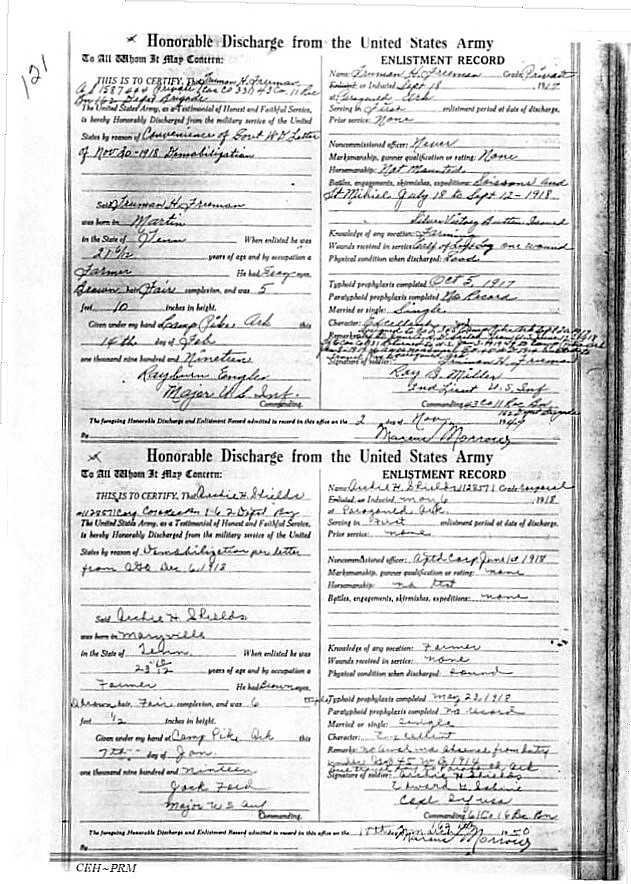 121
Honorable Discharge from the United States Army
To All Whom It May Concern:
THIS IS TO CERTIFY, That Truman H. Freeman
Private
The United States Army, as a Testimonial of Honest and Faithful Service,
is hereby Honorably Discharged from the military service of the United
States by reason of Convenience of Govt W.D. Letter
of Nov 20-1918 Demobilization
Said Truman H. Freeman
was born in Martin
in the State of Tenn When enlisted he was
21 years of age and by occupation a
Farmer He had Gray eyes,
Brown hair, Fair complexion, and was 5
feet 10 inches in height.
Given under my hand Camp Pike, Ark this
14th day of Feb
one thousand nine hundred and Nineteen
Major U.S. Inf.
Commanding.
ENLISTMENT RECORD
Name: Truman H. Freeman Grade: Private
Enlisted, or Inducted Sept 18, 1917
at Paragould Ark
Serving in First enlistment period at date of discharge.
Prior service: None
Noncommissioned officer: Never
Marksmanship, gunner qualification or rating: None
Horsemanship: Not Mounted
Battles, engagements, skirmishes, expeditions: Soissons and
St Mihiel July 18 to Sept 12-1918
Silver Victory Button Issued
Knowledge of any vocation: Farming
Wounds received in service: one wound
Physical condition when discharged: Good
Typhoid prophylaxis completed Oct 5, 1917
Paratyphoid prophylaxis completed No Record
Married or single: Single
Character: Excellent
Remarks:
Signature of soldier: Truman H. Freeman
Ray G. Miller
2nd Lieut U.S. Inf
Commanding 43 Co 11 Rec Bn
The foregoing Honorable Discharge and Enlistment Record admitted to record in this office on the 2 day of Nov, 194
By Marcus Morrow
Honorable Discharge from the United States Army
To All Whom It May Concern:
THIS IS TO CERTIFY, That Archie H. Shields
The United States Army, as a Testimonial of Honest and Faithful Service,
is hereby Honorably Discharged from the military service of the United
States by reason of Demobilization per letter
from AGO Dec 6, 1918
Said Archie H Shields
was born in Maryville
in the State of Tenn. When enlisted he was
23 years of age and by occupation a
Farmer He had Brown eyes,
Brown hair, Fair complexion, and was 6
feet 1/2 inches in height.
Given under my hand at Camp Pike, Ark this
7th day of Jan.
one thousand nine hundred and nineteen
Jack
Major U S
Commanding.
ENLISTMENT RECORD
Name: Archie H. Shields Grade: Corporal
Enlisted, or Inducted, May 6, 1918
at Paragould Ark.
Serving in First enlistment period at date of discharge.
Prior service: none
Noncommissioned officer: Aptd Corp June 1st 1918
Marksmanship, gunner qualification or rating: none
Horsemanship: no
Battles, engagements, skirmishes, expeditions: none
Knowledge of any vocation: Farmer
Wounds received in service: none
Physical condition when discharged: Sound
Typhoid prophylaxis completed May 22, 1918
Paratyphoid prophylaxis completed no record
Married or single: Single
Character: Excellent
Remarks: no absence from duty
under
Signature of soldier: Archie H Shields
Edward
Capt Inf USA
Commanding
The foregoing Honorable Discharge and Enlistment Record admitted to record in this office on the
By Marcus Morrow
CEH~PRM